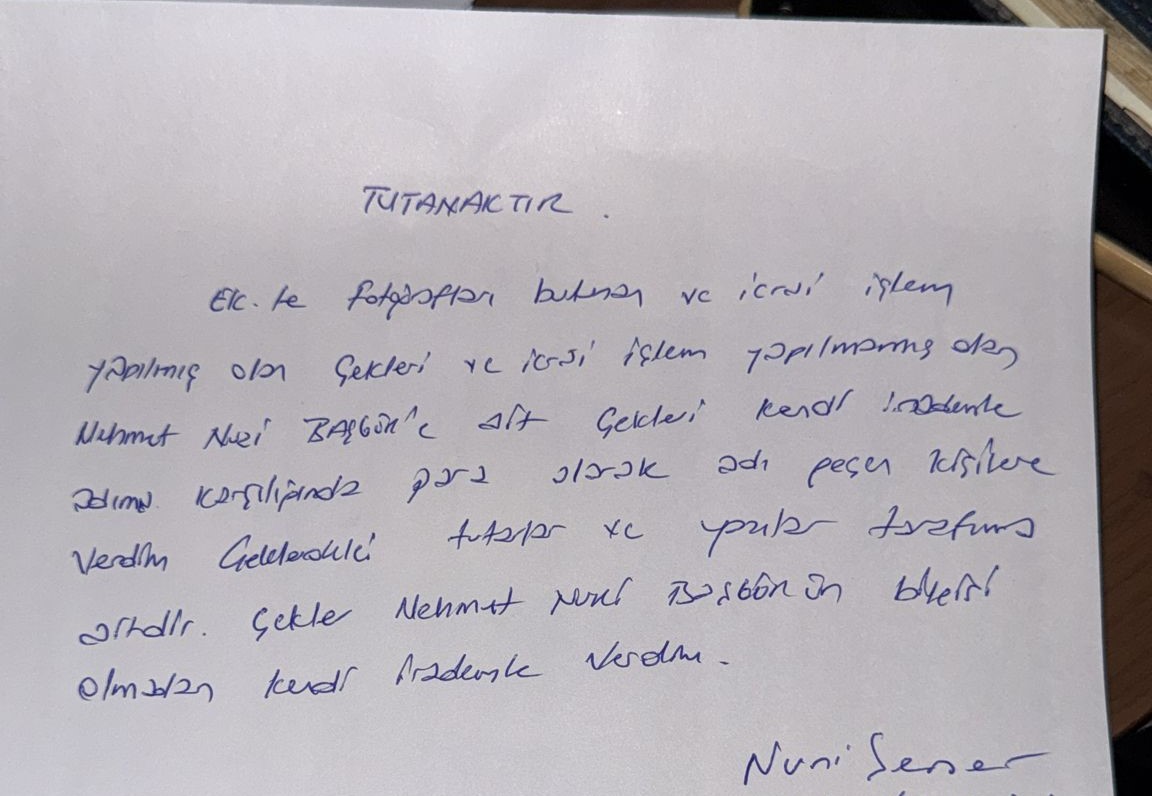 TUTANAKTIR.
Ek. te fotoğrafları bulunan ve icrai işlem
yapılmış olan Çekleri ve icrai işlem yapılmamış olan
Mehmet Nuri BAŞGÖR'e ait Çekleri kendi irademle
karşılığında para olarak adı geçen kişilere
Verdim Çeklerdeki tutarlar ve tarafıma
aittir. Çekler Mehmet Nuri Başgörün bilgisi
olmadan kendi irademle Verdim.
Nuri Sener